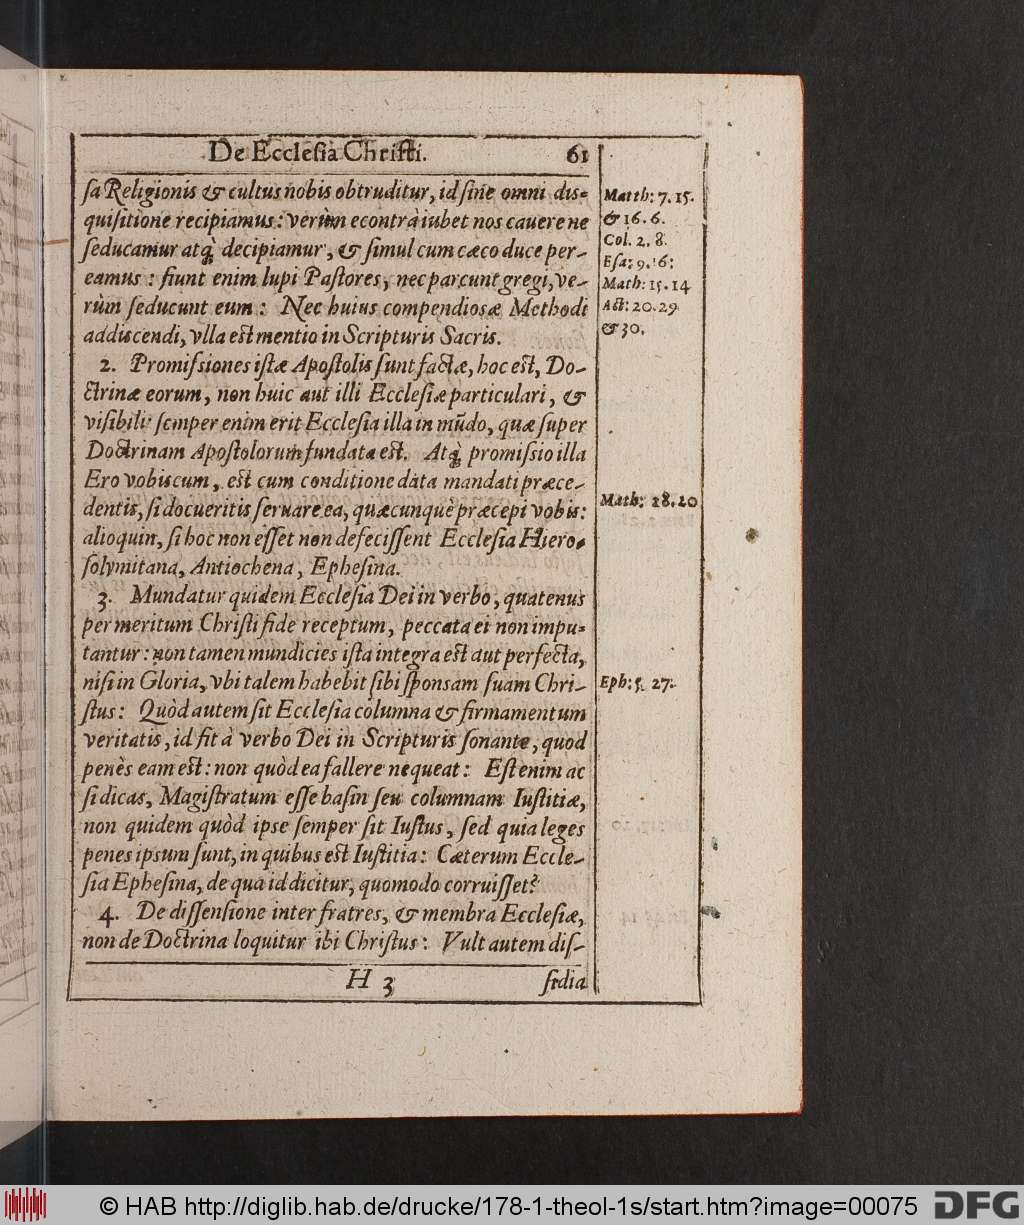 De Ecclesia Christi. 61
sa Religionis & cultus nobis obtruditur, id sine omni dis=
quisitione recipiamus: verùm econtrà iubet nos cauere ne
seducamur atq́; decipiamur, & simul cum cæco duce per-
eamus: fiunt enim lupi Pastores, nec parcunt gregi, ve-
rùm seducunt eum: Nec huius compendiosæ Methodi
addiscendi, vlla est mentio in Scripturis Sacris.
2. Promissiones istæ Apostolis sunt factæ, hoc est, Do-
ctrinæ eorum, non huic aut illi Ecclesiæ particulari, &
visibili: semper enim erit Ecclesia illa in mũdo, quæ super
Doctrinam Apostolorum fundata est. Atq́; promissio illa
Ero vobiscum, est cum conditione data mandati præce-
dentis, si docueritis seruare ea, quæcunquè præcepi vobis:
alioquin, si hoc non esset non defecissent Ecclesia Hiero-
solymitana, Antiochena, Ephesina.
3. Mundatur quidem Ecclesia Dei in verbo, quatenus
per meritum Christi fide receptum, peccata ei non impu=
tantur: non tamen mundicies ista integra est aut perfecta,
nisi in Gloria, vbi talem habebit sibi sponsam suam Chri-
stus: Quòd autem sit Ecclesia columna & firmamentum
veritatis, id fit à verbo Dei in Scripturis sonante, quod
penès eam est: non quòd ea fallere nequeat: Est enim ac
si dicas, Magistratum esse basin seu columnam Iustitiæ,
non quidem quòd ipse semper sit Iustus, sed quia leges
penes ipsum sunt, in quibus est Iustitia: Cæterum Eccle-
sia Ephesina, de qua id dicitur, quomodo corruisset?
4. De dissensione inter fratres, & membra Ecclesiæ,
non de Doctrina loquitur ibi Christus: Vult autem dis-
H 3 sidia
Matth: 7. 15.
& 16. 6.
Col. 2. 8.
Esa: 9. 16:
Math: 15. 14
Act: 20. 29
& 30.
Math: 28. 20
Eph: 5. 27.
© HAB http://diglib.hab.de/drucke/178-1-theol-1s/start.htm?image=00075
DFG